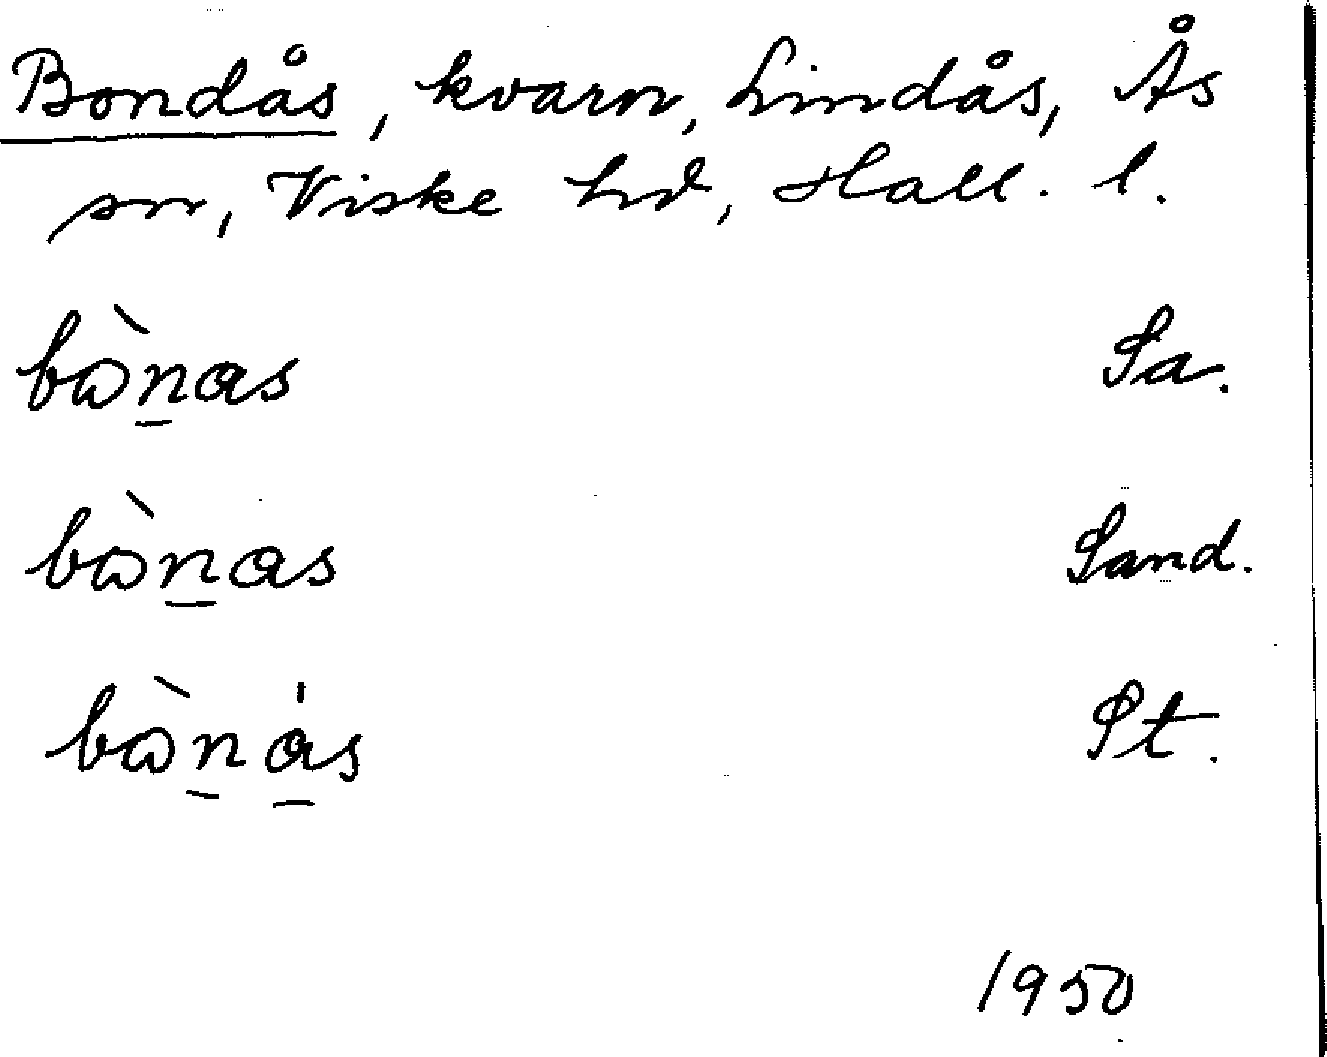 Bondås, kvarn, Lindås, Ås
sn, Viske hd, Hall. l.
bὼn̠as Sa.
bὼn̠as Sand.
bὼn̠a̠̍s St.
1950